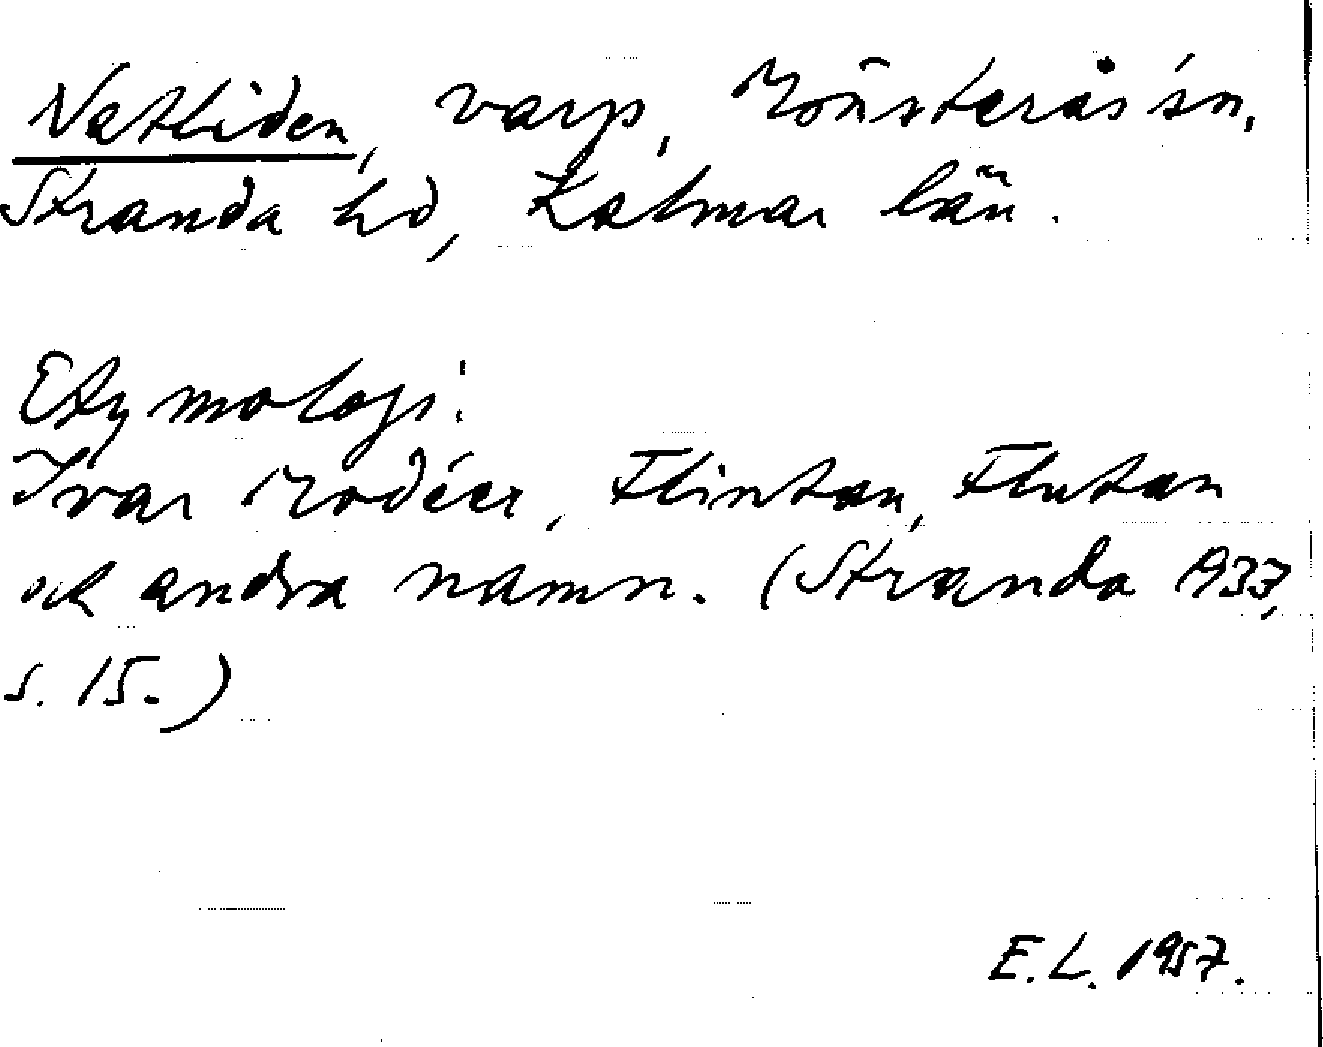 Vattliden, varp, Mönsterås sn,
Stranda hd, Kalmar län.
Etymologi:
Ivar Modéer, Flintan, Flutan
och andra namn. (Stranda 1937,
s. 15.)
E.L. 1957.